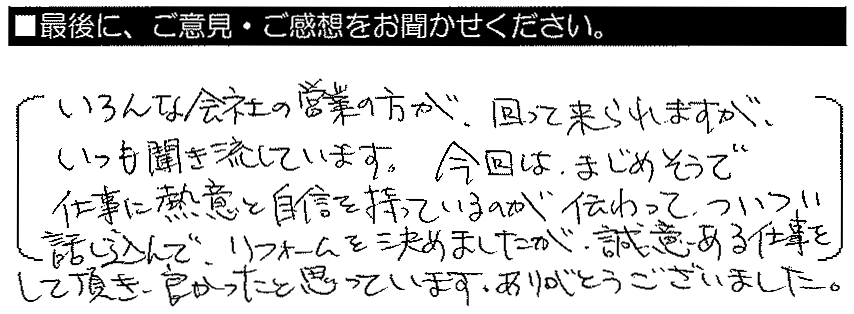 ■最後に、ご意見・ご感想をお聞かせください。
いろんな会社の営業の方が、回って来られますが、
いつも聞き流しています。今回は、まじめそうで
仕事に熱意と自信を持っているのが伝わって、ついつい
話し込んで、リフォームを決めましたが、誠意ある仕事を
して頂き、良かったと思っています。ありがとうございました。